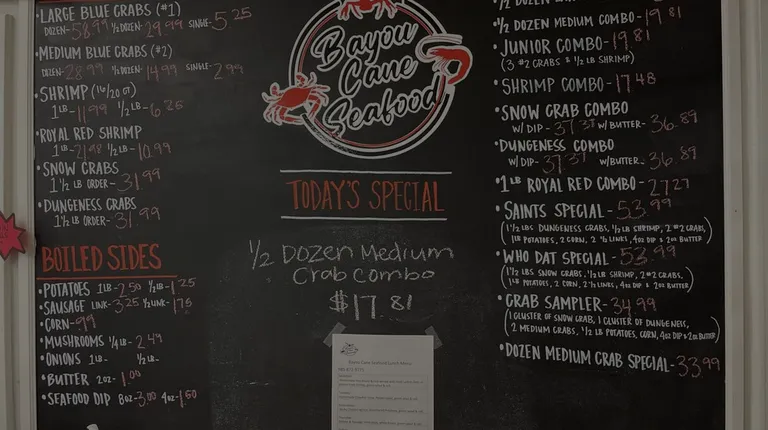 LARGE BLUE CRABS (#1)
DOZEN-58.99 1/2 DOZEN-29.99 SINGLE-5.25
MEDIUM BLUE CRABS (#2)
DOZEN-28.99 1/2 DOZEN-14.99 SINGLE-2.99
SHRIMP (16/20 CT)
1 LB-11.99 1/2 LB-6.25
ROYAL RED SHRIMP
1 LB-21.98 1/2 LB-10.99
SNOW CRABS
1 1/2 LB ORDER-31.99
DUNGENESS CRABS
1 1/2 LB ORDER-31.99
BOILED SIDES
POTATOES 1LB-2.50 1/2 LB-1.25
SAUSAGE LINK-3.25 1/2 LINK-1.75
CORN-.99
MUSHROOMS 1/4 LB-2.49
ONIONS 1LB- 1/2 LB-
BUTTER 2oz-1.00
SEAFOOD DIP 8oz-3.00 4oz-1.50
Bayou
Cane
Seafood
TODAY'S SPECIAL
1/2 Dozen Medium
Crab Combo
$17.81
Bayou Cane Seafood Lunch Menu
1/2 DOZEN MEDIUM COMBO-19.81
JUNIOR COMBO-19.81
(3 #2 CRABS & 1/2 LB SHRIMP)
SHRIMP COMBO-17.48
SNOW CRAB COMBO
W/ DIP-37.37 W/ BUTTER-36.89
DUNGENESS COMBO
W/ DIP-37.37 W/BUTTER-36.89
1 LB ROYAL RED COMBO-27.27
SAINTS SPECIAL-53.99
(1 1/2 LBS DUNGENESS CRABS, 1/2 LB SHRIMP, 2 #2 CRABS,
1LB POTATOES, 2 CORN, 2 1/2 LINKS, 4oz DIP & 2oz BUTTER)
WHO DAT SPECIAL-53.99
(1 1/2 LBS SNOW CRABS, 1/2 LB SHRIMP, 2 #2 CRABS,
1LB POTATOES, 2 CORN, 2 1/2 LINKS, 4oz DIP & 2oz BUTTER)
CRAB SAMPLER-34.99
(1 CLUSTER OF SNOW CRAB, 1 CLUSTER OF DUNGENEIS,
2 MEDIUM CRABS, 1/2 LB POTATOES, CORN, 4oz DIP & 2oz BUTTER)
DOZEN MEDIUM CRAB SPECIAL-33.99